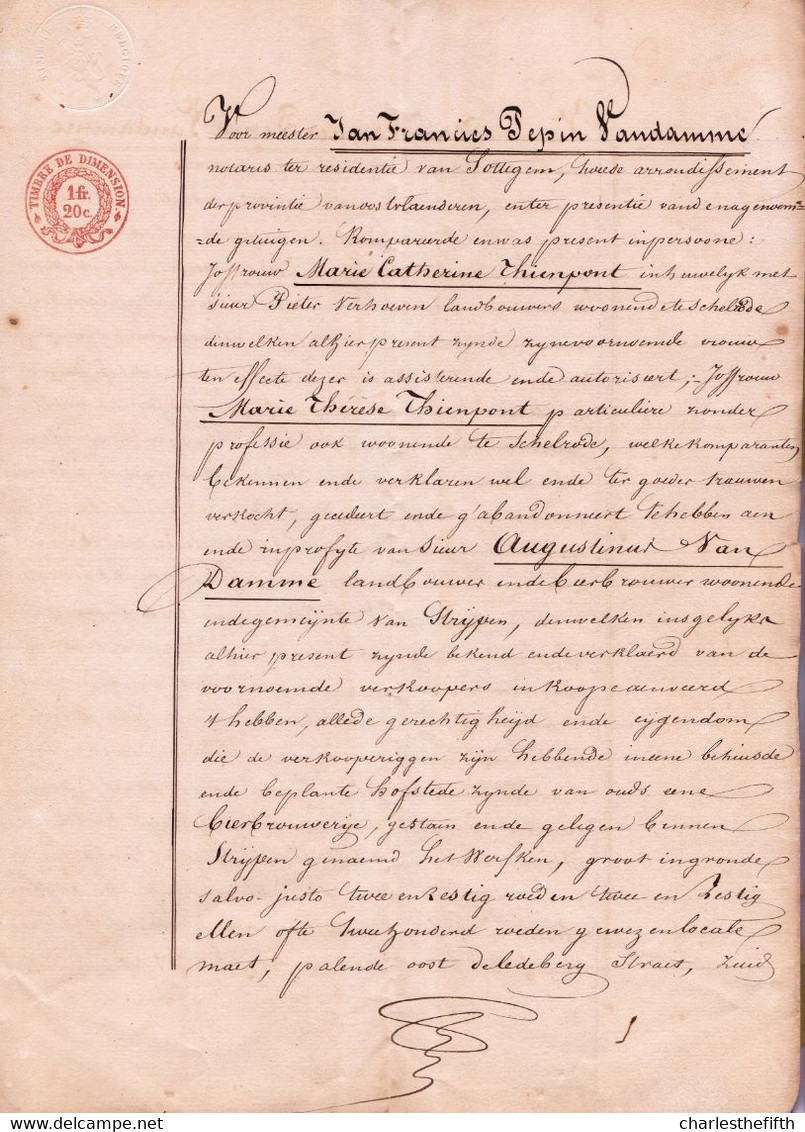 TIMBRE DE DIMENSION
1 fr.
20 c.
Voor meester Jan Francies Pepin Vandamme
notaris ter residentie van Sottegem, twede arrondissement
der provintie vanoostvlaenderen, enter presentie vand enagenoem=
=de getuigen. Kompareerde enwas present inpersoone:
Joffrouw Marie Catherine Thienpont inhuwelijk met
sieur Pieter Verhoeven landbouwers woonende te Schelrode
dinwelken alhier present zynde zynevoornoemde vrouw
ten effecte dezer is assisterende ende autoriseert; Joffrouw
Marie Thérèse Thienpont particuliere zonder
professie ook woonende te Schelrode, welke komparanten
bekennen ende verklaren wel ende ter goeder trauwen
verkocht, gecedeert ende g'abandonneert tehebben aen
ende inprofyte van Sieur Augustinus Van
Damme landbouwer ende bierbrouwer woonende
indegemeijnte Van Strijpen, denwelken insgelykx
alhier present zynde bekend ende verklaerd van de
voornoemde verkoopers inkoope aenveerd
t hebben, allede gerechtigheijd ende eijgendom
die de verkooperiggen zijn hebbende ineene behuisde
ende beplante hofstede zynde van ouds eene
bierbrouwerije, gestaen ende gelegen binnen
Strijpen genaemd het Werfken, groot ingronde
salvo-justo twee enzestig roeden twee en zestig
ellen ofte tweehonderd roeden gewezenlocale
maet, palende oost deledeberg Straet, zuid
charlesthefifth